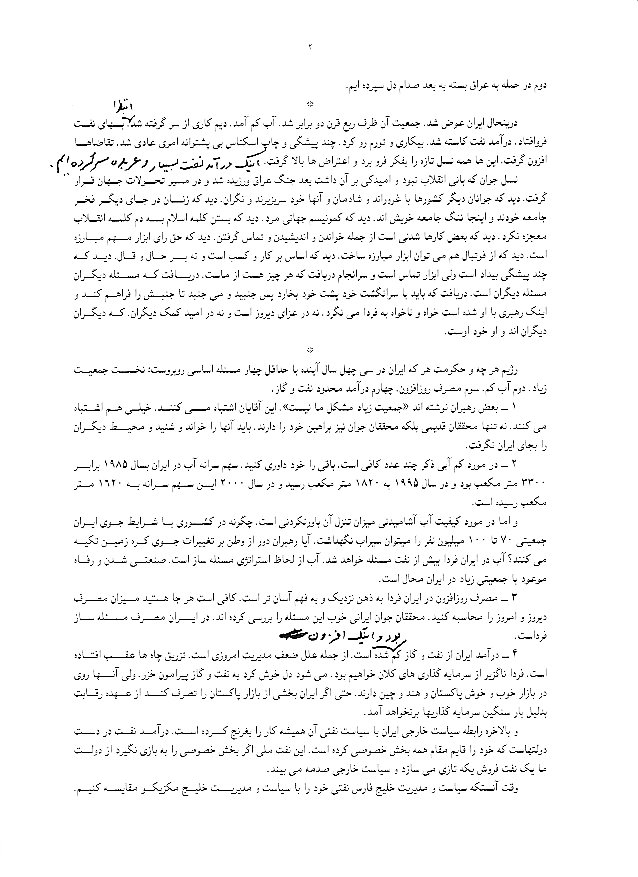 ۲
دوم در حمله به عراق بسته به بعد صدام دل سپرده ایم.
*
درینحال ایران عوض شد. جمعیت آن ظرف ربع قرن دو برابر شد. آب کم آمد. دیم کاری از سر گرفته شد. بهای نفت
فروافتاد. درآمد نفت کاسته شد. بیکاری و تورم رو کرد. چند پیشگی و چاپ اسکناس بی پشتوانه امری عادی شد. تقاضاها
افزون گرفت. این ها همه نسل تازه را بفکر فرو برد و اعتراض ها بالا گرفت. اینک درآمد نفت بسیار و
نسل جوان که بانی انقلاب نبود و امیدکی بر آن داشت بعد جنگ عراق ورزیده شد و در مسیر تحولات جهان قرار
گرفت. دید که جوانان دیگر کشورها با غروراند و شادمان و آنها خود سربزیرند و نگران. دید که زنان در جای دیگر فخر
جامعه خودند و اینجا ننگ جامعه خویش اند. دید که کمونیسم جهانی مرد. دید که بستن کلمه اسلام بسه دم کلمه انقلاب
معجزه نکرد. دید که بعض کارها شدنی است از جمله خواندن و اندیشیدن و تماس گرفتن. دید که حق رای ابزار مهم مبارزه
است. دید که از فوتبال هم می توان ابزار مبارزه ساخت. دید که اساس بر کار و کسب است و نه بر حال و قال. دید که
چند پیشگی بیداد است ولی ابزار تماس است و سرانجام دریافت که هر چیز هست از ماست. دریافت که مسئله دیگران
مسئله دیگران است. دریافت که باید با سرانگشت خود پشت خود بخارد پس جنبید و می جنبد تا جنبش را فراهم کند و
اینک رهبری با او شده است خواه و ناخواه به فردا می نگرد. نه در عزای دیروز است و نه در امید کمک دیگران. که دیگران
دیگران اند و او خود اوست.
*
رژیم هر چه و حکومت هر که ایران در سی چهل سال آینده با حداقل چهار مسئله اساسی روبروست: نخست جمعیت
زیاد. دوم آب کم. سوم مصرف روزافزون. چهارم درآمد محدود نفت و گاز.
۱ – بعض رهبران نوشته اند «جمعیت زیاد مشکل ما نیست». این آقایان اشتباه می کنند. خیلی هم اشتباه
می کنند. نه تنها محققان قدیمی بلکه محققان جوان نیز براهین خود را دارند. باید آنها را خواند و شنید و محیط دیگران
را بجای ایران نگرفت.
۲ – در مورد کم آبی ذکر چند عدد کافی است. باقی را خود داوری کنید. سهم سرانه آب در ایران بسال ۱۹۸۵ برابر
۳۳۰۰ متر مکعب بود و در سال ۱۹۹۵ به ۱۸۲۰ متر مکعب رسید و در سال ۲۰۰۰ این سهم سرانه به ۱۶۲۰ متر
مکعب رسیده است.
و اما در مورد کیفیت آب آشامیدنی میزان تنزل آن باورنکردنی است. چگونه در کشوری با شرایط جوی ایران
جمعیتی ۷۰ تا ۱۰۰ میلیون نفر را میتوان سیراب نگهداشت. آیا رهبران دور از وطن بر تغییرات جوی کره زمین تکیه
می کنند؟ آب در ایران فردا بیش از نفت مسئله خواهد شد. آب از لحاظ استراتژی مسئله ساز است. صنعتی شدن و رفاه
موعود با جمعیتی زیاد در ایران محال است.
۳ – مصرف روزافزون در ایران فردا به ذهن نزدیک و به فهم آسان تر است. کافی است هر جا هستید میزان مصرف
دیروز و امروز را محاسبه کنید. محققان جوان ایرانی خوب این مسئله را بررسی کرده اند. در ایران مصرف مسئله ساز
فرداست.
بود و اینک افزون
۴ – درآمد ایران از نفت و گاز کم شده است. از جمله علل ضعف مدیریت امروزی است. تزریق چاه ها عقب افتاده
است. فردا ناگزیر از سرمایه گذاری های کلان خواهیم بود. می شود دل خوش کرد به نفت و گاز پیرامون خزر. ولی آنها روی
در بازار خوب و خوش پاکستان و هند و چین دارند. حتی اگر ایران بخشی از بازار پاکستان را تصرف کند از عهده رقابت
بدلیل بار سنگین سرمایه گذاریها برنخواهد آمد.
و بالاخره رابطه سیاست خارجی ایران با سیاست نفتی آن همیشه کار را بغرنج کرده است. درآمد نفت در دست
دولتهاست که خود را قایم مقام همه بخش خصوصی کرده است. این نفت ملی اگر بخش خصوصی را به بازی نگیرد از دولت
ما یک نفت فروش یکه تازی می سازد و سیاست خارجی صدمه می بیند.
وقت آنستکه سیاست و مدیریت خلیج فارس نفتی خود را با سیاست و مدیریت خلیج مکزیکو مقایسه کنیم.